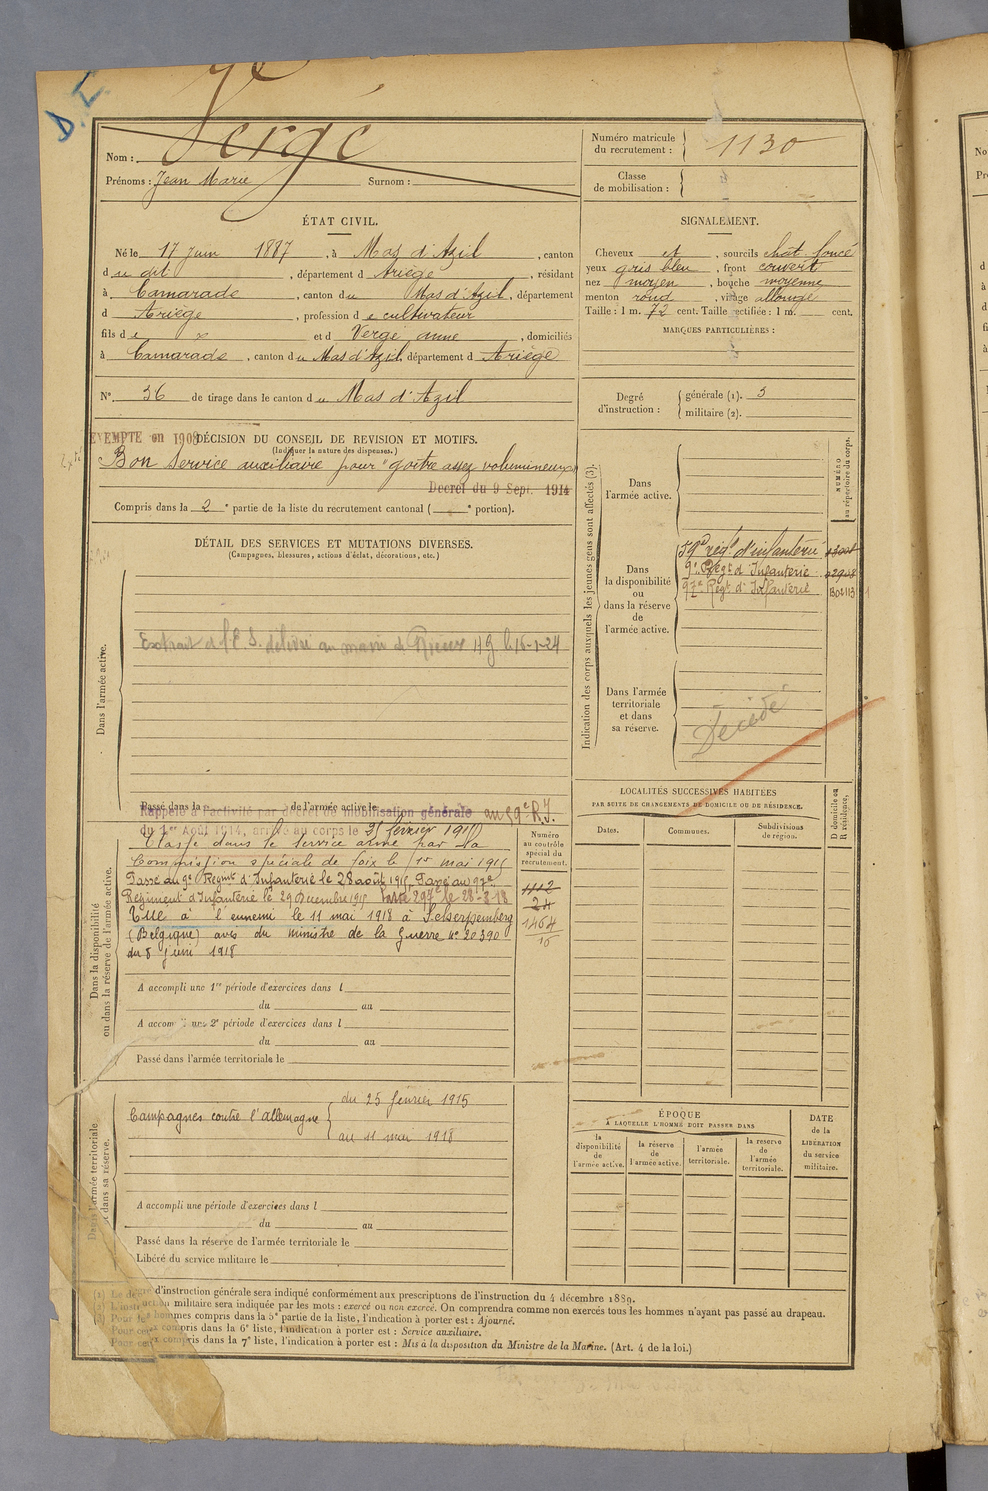 D. E.
Vergé
Nom :
Prénoms : Jean Marie Surnom :
Numéro matricule
du recrutement : 1130
Classe
de mobilisation :
ÉTAT CIVIL.
Né le 17 Juin 1887, à Mas d'Azil, canton
du dit, département d Ariège, résidant
à Camarade, canton du Mas d'Azil, département
d Ariège, profession de cultivateur
fils de x et d Vergé anne, domiciliés
à Camarade, canton du Mas d'Azil, département d Ariège
N° 36 de tirage dans le canton du Mas d'Azil
SIGNALEMENT.
Cheveux et, sourcils chat. foncé
yeux gris bleu, front couvert
nez moyen, bouche moyenne
menton rond, visage allongé
Taille : 1 m. 72 cent. Taille rectifiée : 1 m. cent.
MARQUES PARTICULIÈRES :
Degré
d'instruction :
générale (1). 3
militaire (2).
EXEMPTÉ en 1908
DÉCISION DU CONSEIL DE REVISION ET MOTIFS.
(Indiquer la nature des dispenses.)
Bon Service auxiliaire pour "goitre assez volumineux"
Decret du 9 Sept. 1914
Compris dans la 2e partie de la liste du recrutement cantonal ( e portion).
DÉTAIL DES SERVICES ET MUTATIONS DIVERSES.
(Campagnes, blessures, actions d'éclat, décorations, etc.)
Dans l'armée active.
Extrait d l'E. S. délivré au maire de Rieux HG le 16-1-24
Passé dans la de l'armée active le
Rappelé à l'activité par décret de mobilisation générale au 59e R.I.
du 1er Août 1914, arrivé au corps le 25 février 1915
Classé dans le service armé par la
Commission spéciale de Foix le 1er mai 1915
Passé au 9e Régimt d'Infanterie le 28 août 1915, Passé au 97e
Régiment d'Infanterie le 29 Décembre 1915 Passé 297e le 28-3-18
Tué à l'ennemi le 11 mai 1918 à Scherpemberg
(Belgique) avis du ministre de la Guerre N° 20390
du 8 juin 1918
Dans la disponibilité
ou dans la réserve de l'armée active.
Numéro
au contrôle
spécial du
recrutement.
1112
24
1464
16
A accompli une 1re période d'exercices dans l
du au
A accompli une 2e période d'exercices dans l
du au
Passé dans l'armée territoriale le
Dans l'armée territoriale
et dans sa réserve.
Campagnes contre l'allemagne
du 25 février 1915
au 11 mai 1918
A accompli une période d'exercices dans l
du au
Passé dans la réserve de l'armée territoriale le
Libéré du service militaire le
Indication des corps auxquels les jeunes gens sont affectés (3).
NUMÉRO
au répertoire du corps.
Dans
l'armée active.
Dans
la disponibilité
ou
dans la réserve
de
l'armée active.
59e régt d'infanterie
9e Régt d'Infanterie
97e Régt d'Infanterie
Dans l'armée
territoriale
et dans
sa réserve.
Décédé
LOCALITÉS SUCCESSIVES HABITÉES
PAR SUITE DE CHANGEMENTS DE DOMICILE OU DE RÉSIDENCE.
Dates.
Communes.
Subdivisions
de région.
D domicile ou
R résidence.
ÉPOQUE
A LAQUELLE L'HOMME DOIT PASSER DANS
la
disponibilité
de
l'armée active.
la réserve
de
l'armée active.
l'armée
territoriale.
la reserve
de
l'armée
territoriale.
DATE
de la
LIBÉRATION
du service
militaire.
(1) Le degré d'instruction générale sera indiqué conformément aux prescriptions de l'instruction du 4 décembre 1889.
(2) L'instruction militaire sera indiquée par les mots : exercé ou non exercé. On comprendra comme non exercés tous les hommes n'ayant pas passé au drapeau.
(3) Pour les hommes compris dans la 5e partie de la liste, l'indication à porter est : Ajourné.
Pour ceux compris dans la 6e liste, l'indication à porter est : Service auxiliaire.
Pour ceux compris dans la 7e liste, l'indication à porter est : Mis à la disposition du Ministre de la Marine. (Art. 4 de la loi.)